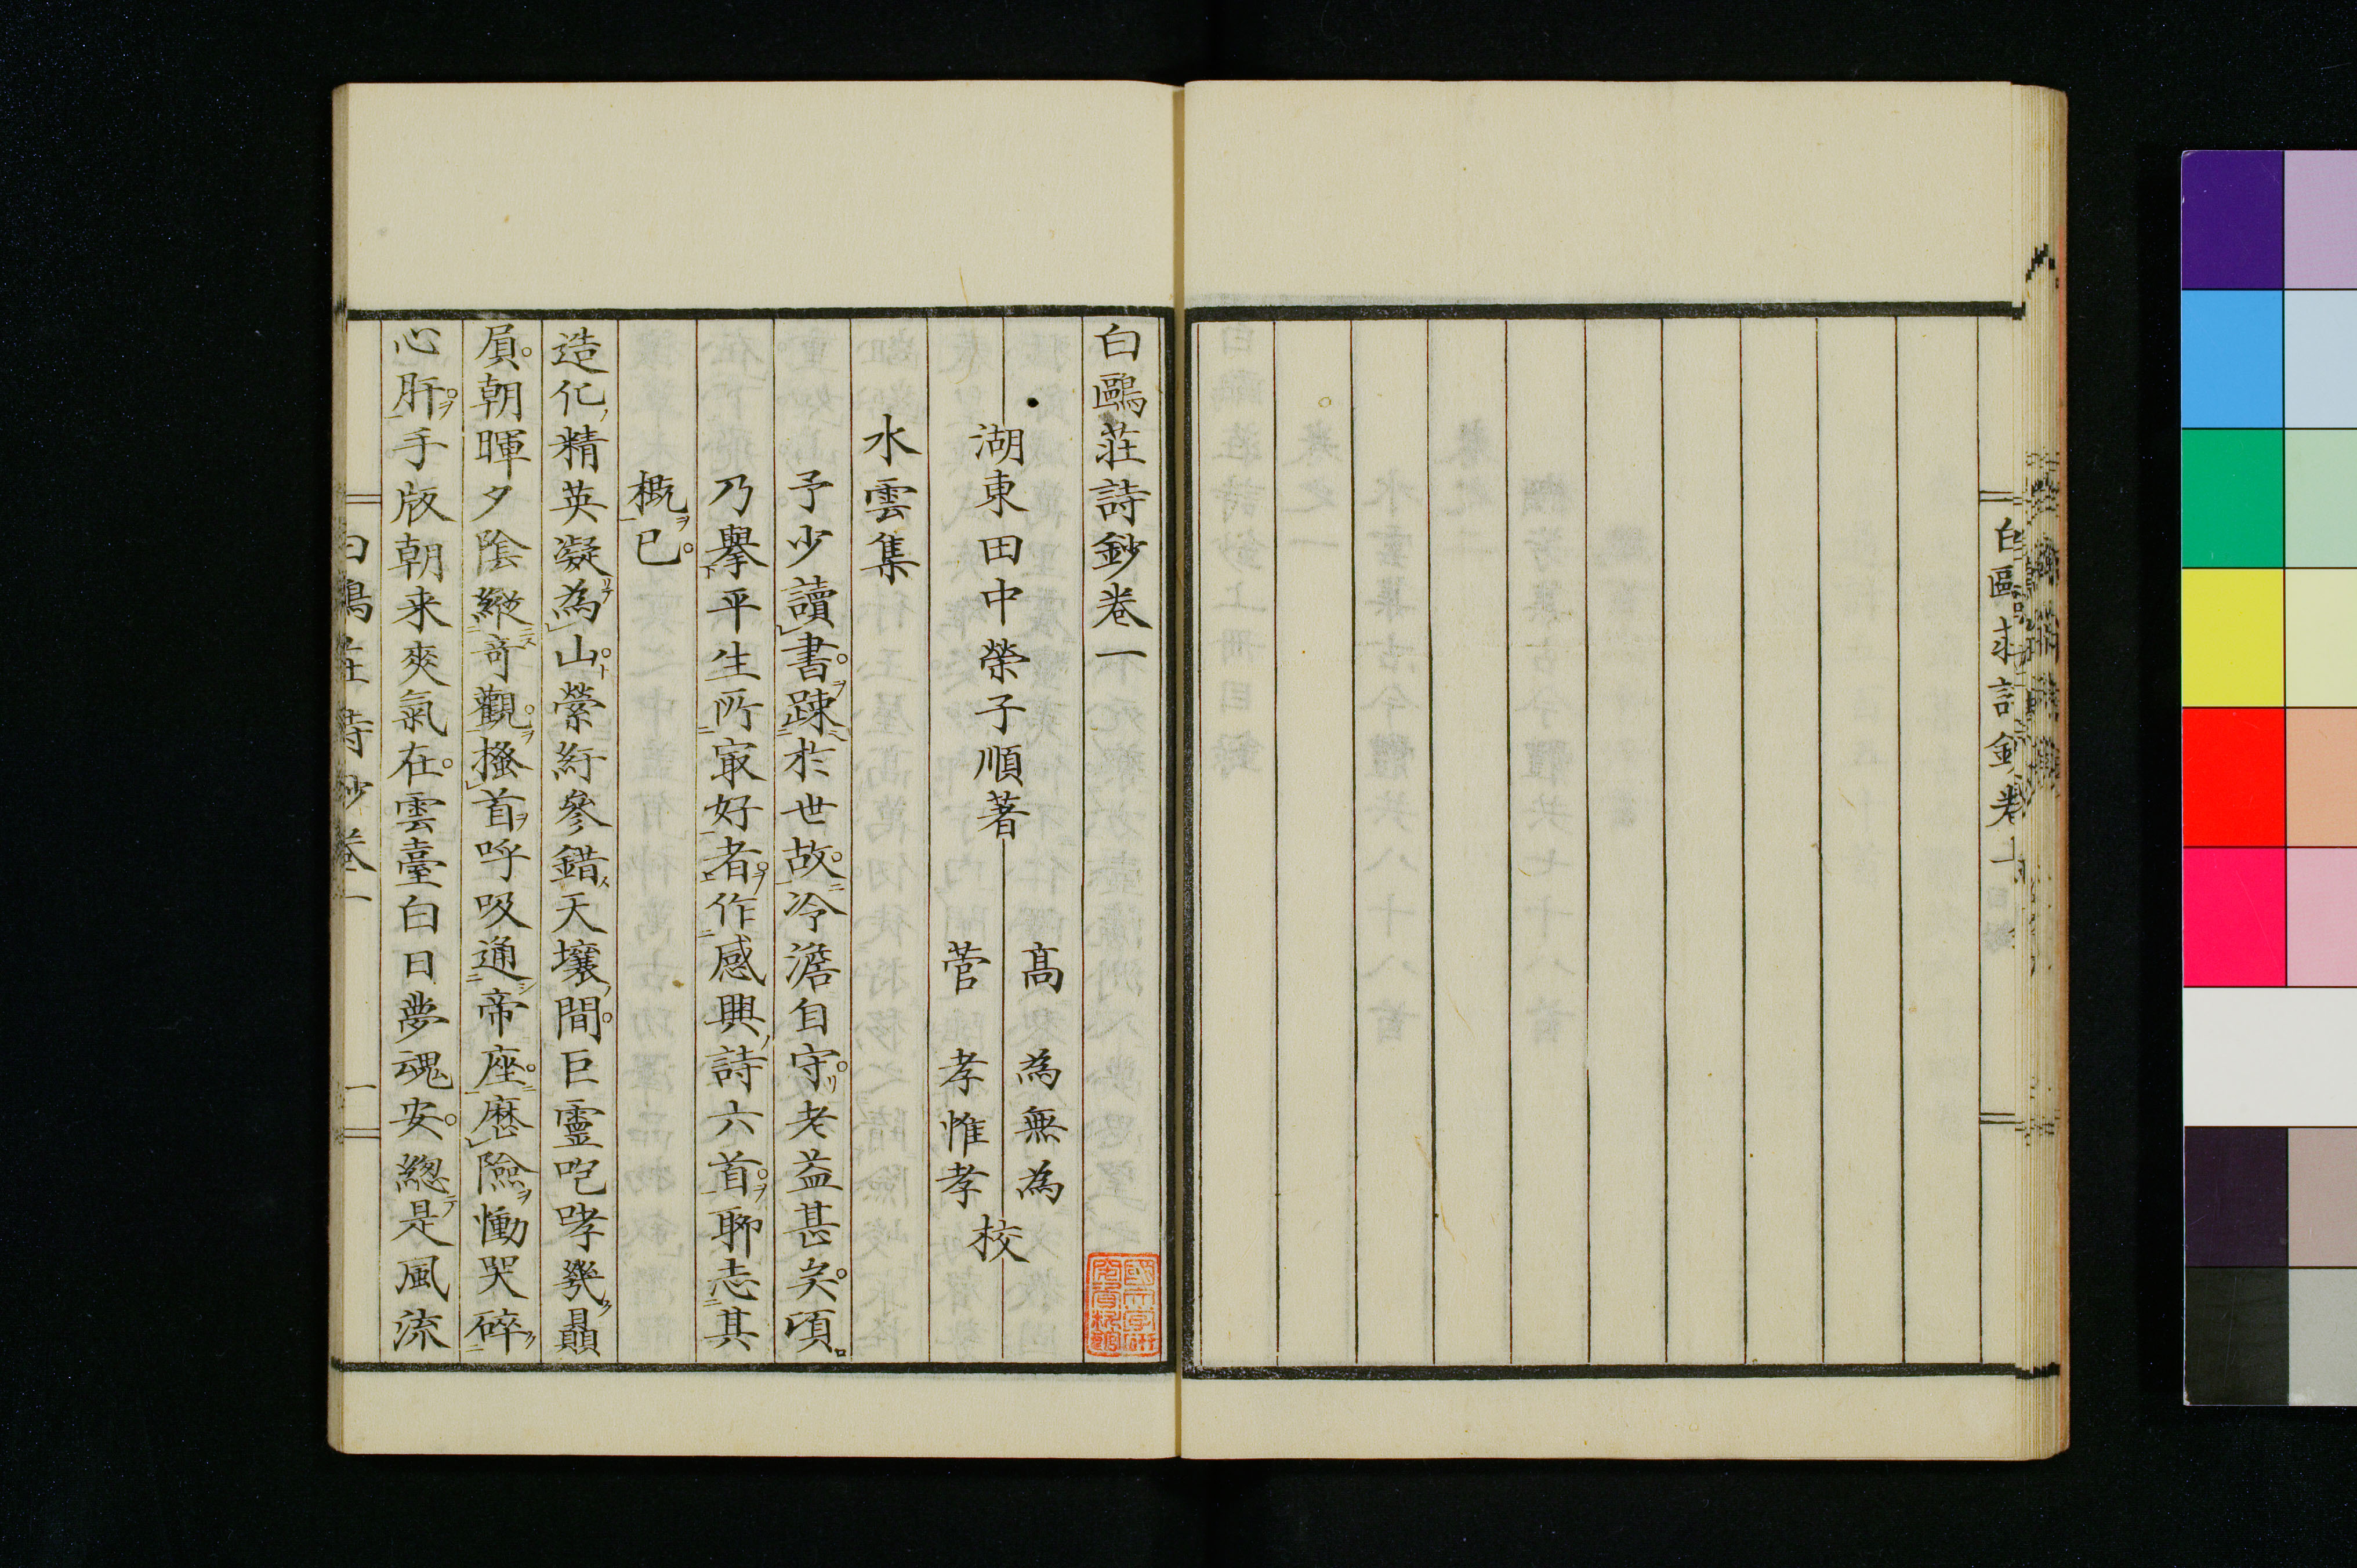 白鷗莊詩鈔卷一
湖東田中榮子順著
高　為無為
菅　孝惟孝
校
水雲集
予少讀書踈於世故冷澹自守老益甚矣頃
乃擧平生所㝡好者作感興詩六首聊志其
概已
造化精英凝為山縈紆參錯天壤間巨靈咆哮幾贔
屓朝暉夕陰縱奇觀搔首呼吸通帝座歷險慟哭碎
心肝手版朝来爽氣在雲臺白日夢魂安總是風流